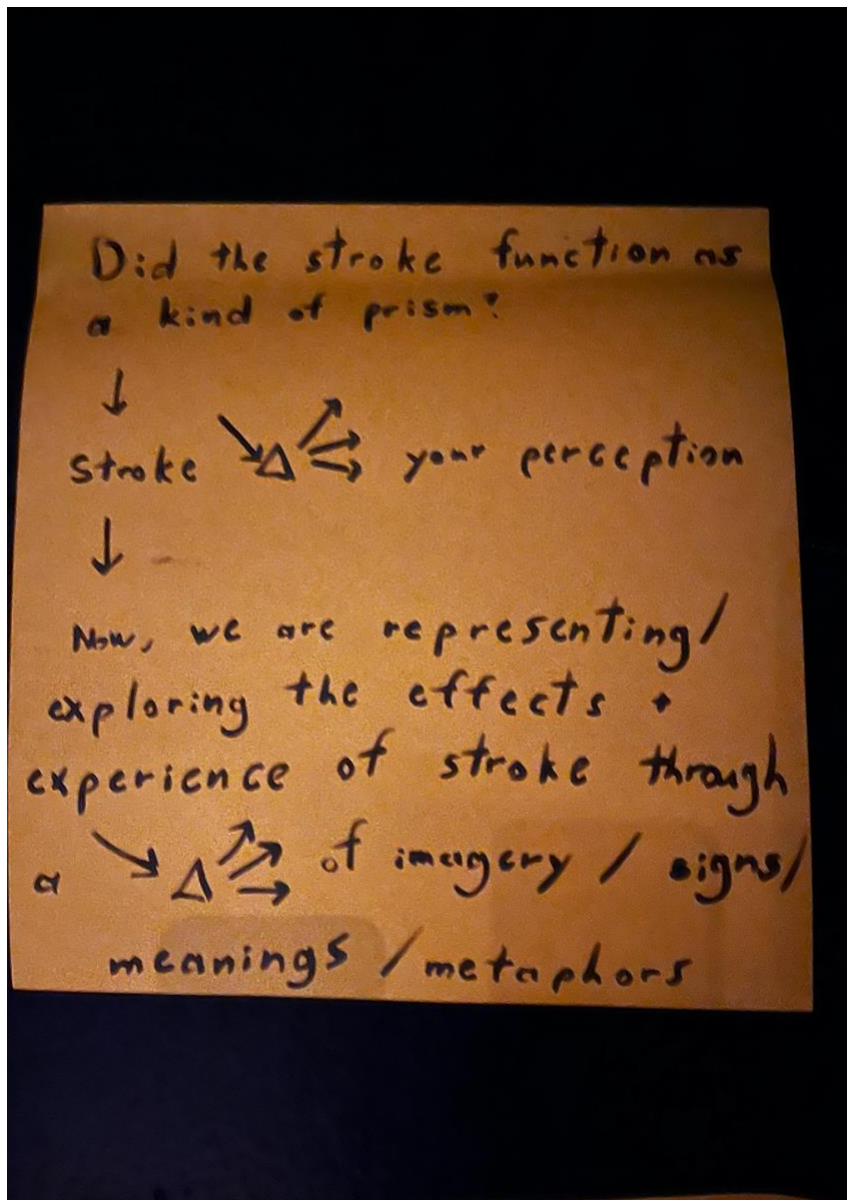 Did the stroke function as
a kind of prism?
↓
Stroke ↘△↗→→ your perception
↓
Now, we are representing/
exploring the effects +
experience of stroke through
a ↘△↗↗→ of imagery / signs/
meanings / metaphors